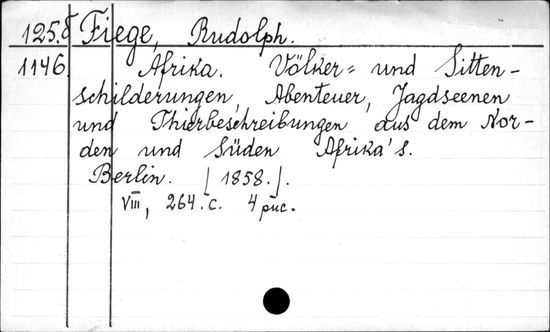 125.8 Fiege, Rudolph.
1146 Afrika. Völker= und Sitten-
schilderungen, Abenteuer, Jagdscenen
und Thierbeschreibungen aus dem Nor-
den und Süden Afrika's.
Berlin. [1858.].
VIII, 264.c. 4 рис.